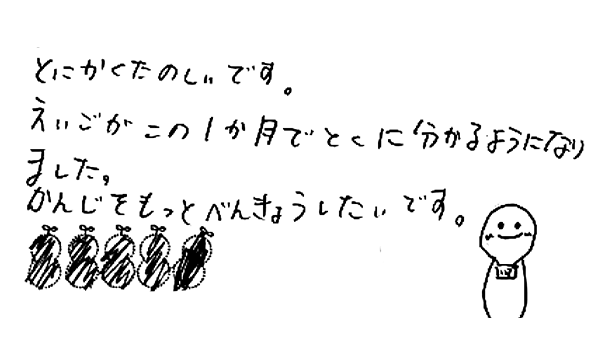 とにかくたのしいです。
えいごがこの1か月でとくに分かるようになり
ました。
かんじをもっとべんきょうしたいです。